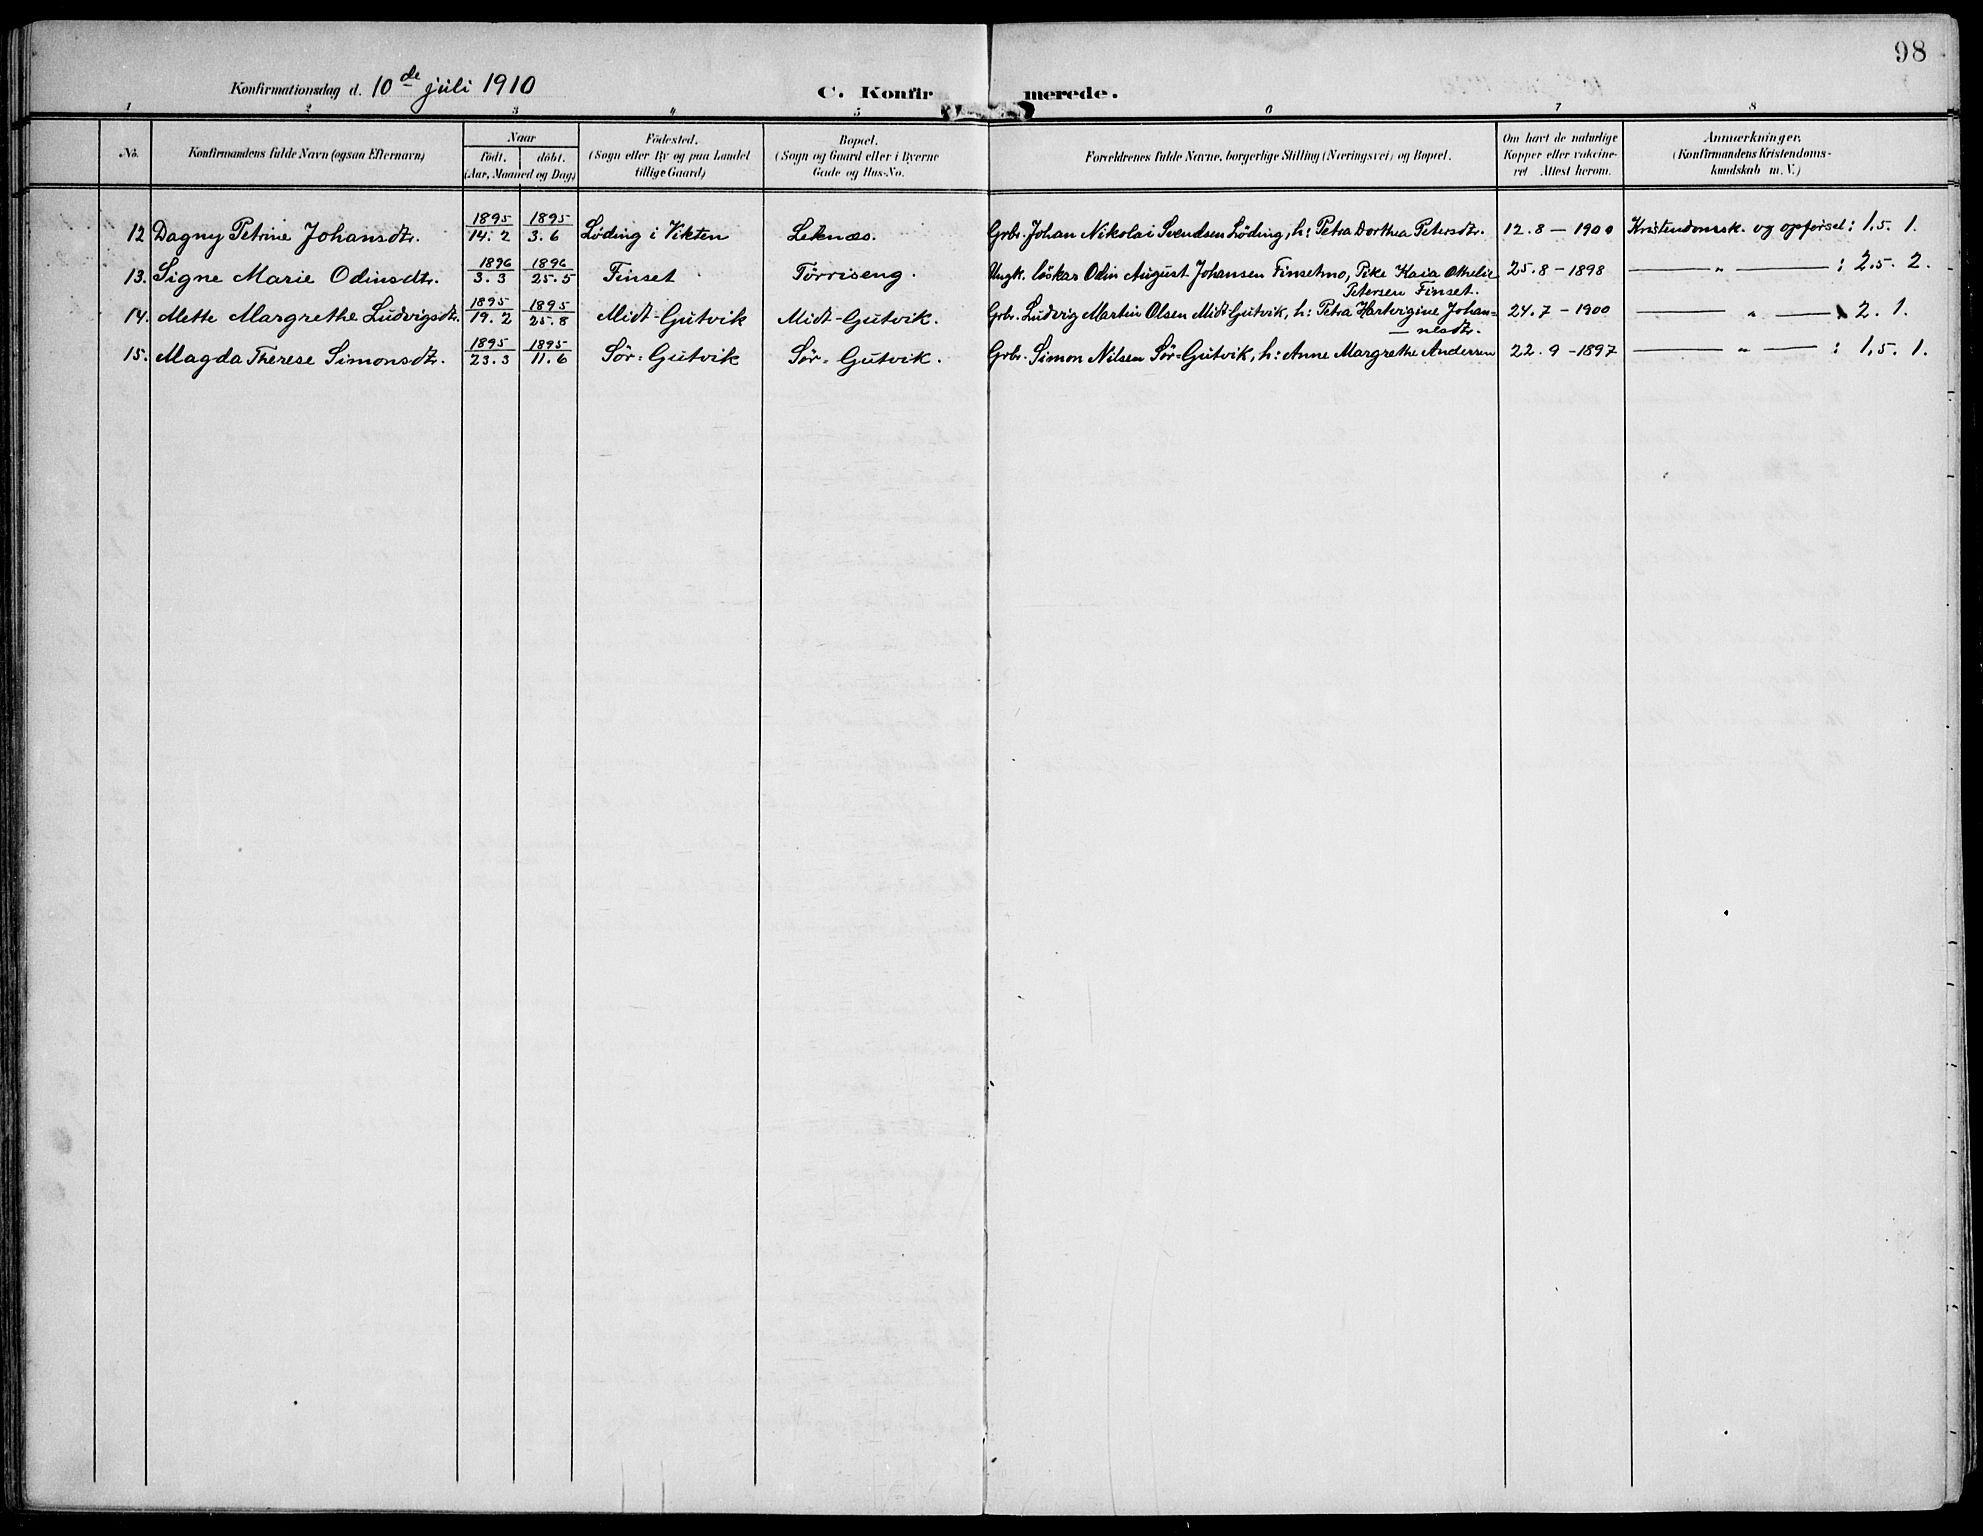 98
Konfirmationsdag d. 10de juli 1910 C. Konfirmerede.
1 2 3 4 5 6 7 8
No. Konfirmandens fulde Navn (ogsaa Efternavn) Naar født. døbt. (Aar, Maaned og Dag) Fødested. (Sogn eller By og paa Landet tillige Gaard) Bopæl. (Sogn og Gaard eller i Byerne Gade og Hus-No. Forældrenes fulde Navne, borgerlige Stilling (Næringsvei) og Bopæl. Om havt de naturlige Kopper eller vakcineret Attest herom. Anmærkninger. (Konfirmandens Kristendomskundskab m. V.)
12 Dagny Petrine Johansdtr. 1895 14.2 1895 3.6 Løding i Vikten Leknæs. Grbr. Johan Nikolai Svendsen Løding, h: Petra Dorthea Petersdtr. 12.8 – 1900 Kristendomsk. og opførsel: 1,5. 1.
13. Signe Marie Odinsdtr. 1896 3.3 1896 25.5 Finset Tørriseng. Ungk. løskar Odin August Johansen Finsetmo, Pike Kaia Othelie 25.8 – 1898 — „ — : 2,5. 2.
Petersen Finset.
14. Mette Margrethe Ludvigsdtr. 1895 19.2 1895 25.8 Midt-Gutvik Midt-Gutvik. Grbr. Ludvig Martin Olsen Midt-Gutvik, h: Petra Hartvigine Johan- 24.7 – 1900 — „ — : 2. 1.
— nesdtr.
15. Magda Therese Simonsdtr. 1895 23.3 1895 11.6 Sør-Gutvik Sør-Gutvik. Grbr. Simon Nilsen Sør-Gutvik, h: Anne Margrethe Andersen 22.9 – 1897 — „ — : 1,5. 1.